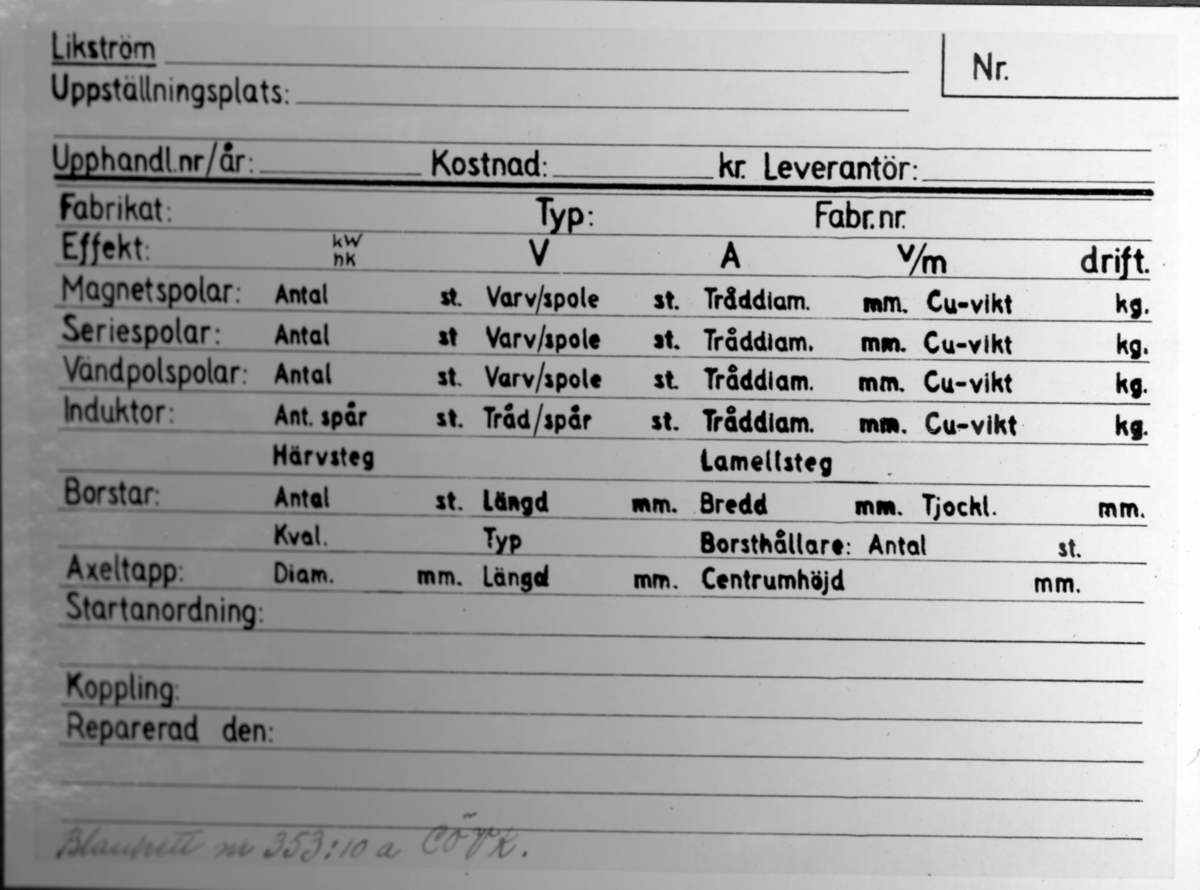 Likström
Nr.
Uppställningsplats:
Upphandl.nr/år: Kostnad: kr. Leverantör:
Fabrikat: Typ: Fabr.nr.
Effekt: kW hk V A v/m drift.
Magnetspolar: Antal st. Varv/spole st. Tråddiam. mm. Cu-vikt kg.
Seriespolar: Antal st Varv/spole st. Tråddiam. mm. Cu-vikt kg.
Vändpolspolar: Antal st. Varv/spole st. Tråddiam. mm. Cu-vikt kg.
Induktor: Ant. spår st. Tråd/spår st. Tråddiam. mm. Cu-vikt kg.
Härvsteg Lamellsteg
Borstar: Antal st. Längd mm. Bredd mm. Tjockl. mm.
Kval. Typ Borsthållare: Antal st.
Axeltapp: Diam. mm. Längd mm. Centrumhöjd mm.
Startanordning:
Koppling:
Reparerad den:
Blankett nr 353:10 a CÖVK.